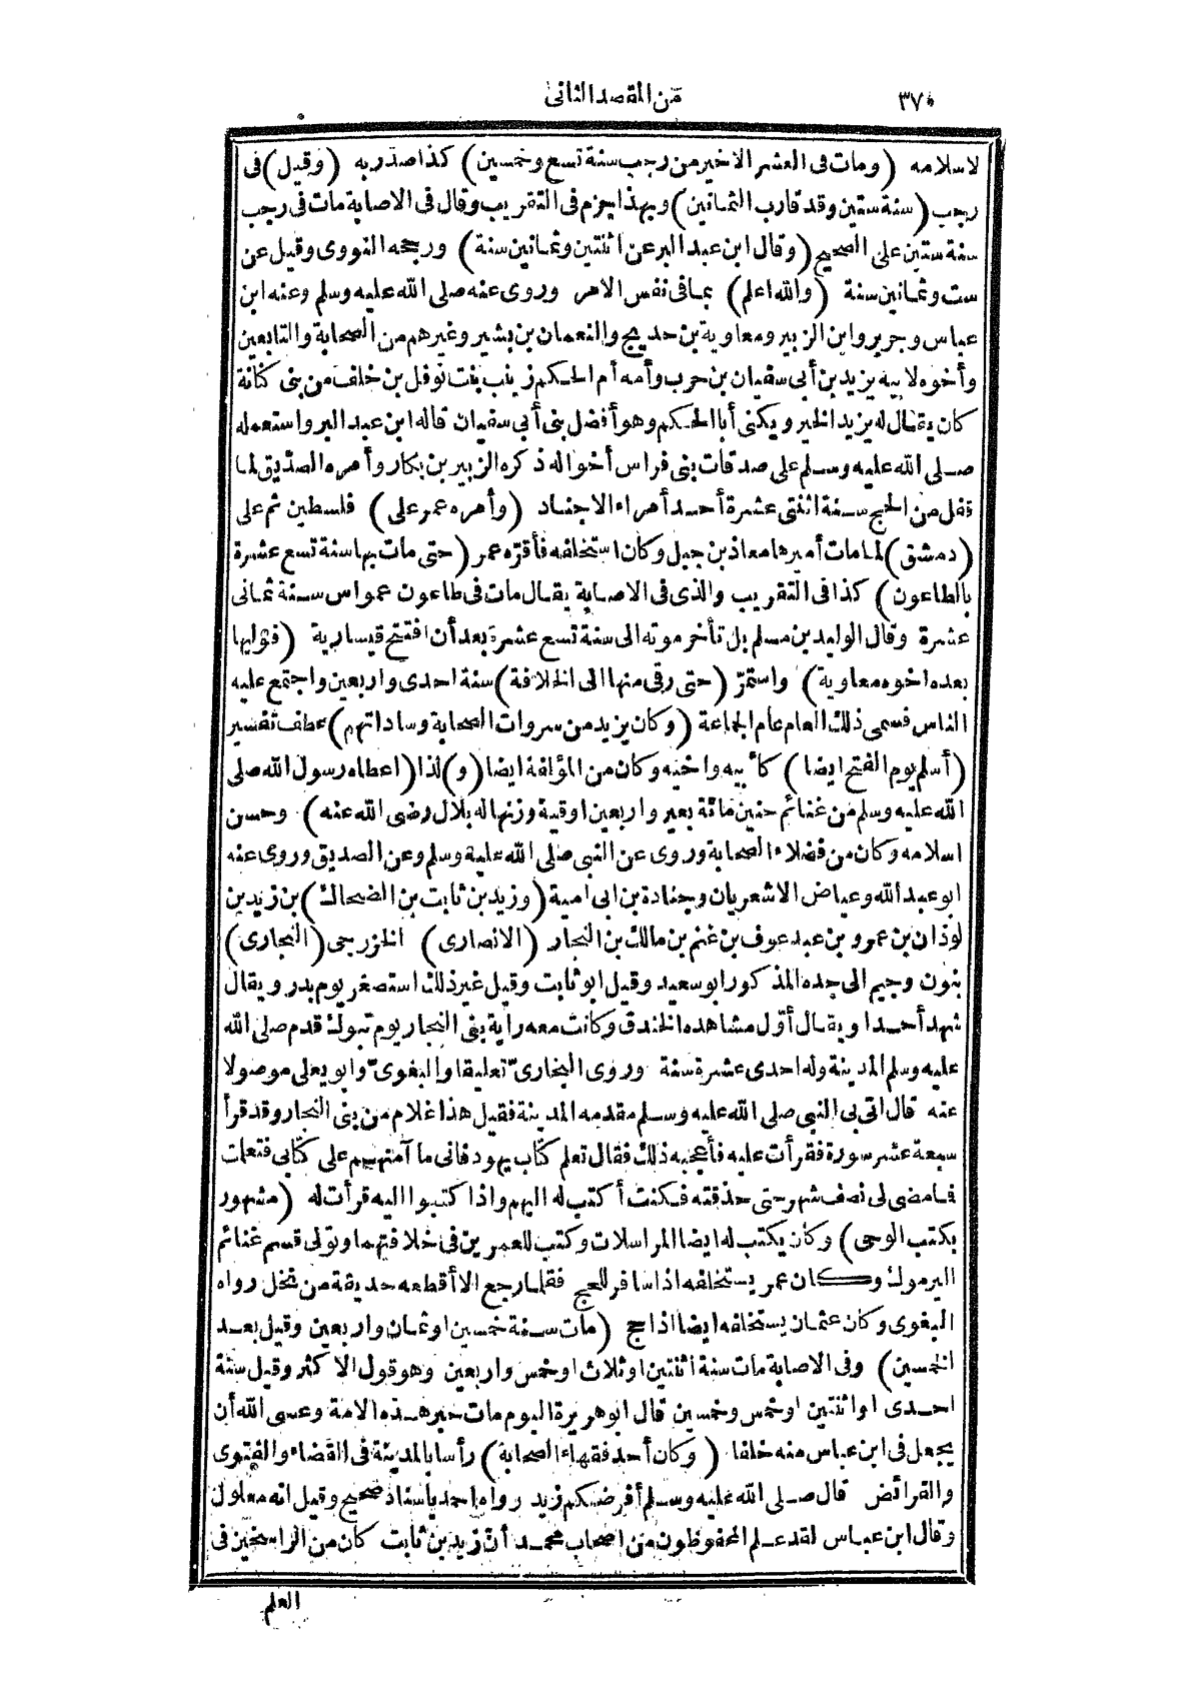 ٣٧٠ من المقصد الثانى
لاسلامه (ومات فى العشر الاخير من رجب سنة تسع وخمسين) كذا صدر به (وقيل) فى
رجب (سنة ستين وقد قارب الثمانين) وبهذا جزم فى التقريب وقال فى الاصابة مات فى رجب
سنة ستين على الصحيح (وقال ابن عبد البر عن اثنتين وثمانين سنة) ورجحه النووى وقيل عن
ست وثمانين سنة (والله اعلم) بما فى نفس الامر وروى عنه صلى الله عليه وسلم وعنه ابن
عباس وجرير وابن الزبير ومعاوية بن حديج والنعمان بن بشير وغيرهم من الصحابة والتابعين
وأخوه لابيه يزيد بن أبى سفيان بن حرب وأمه أم الحكم زينب بنت نوفل بن خلف من بنى كنانة
كان يقال له يزيد الخير ويكنى أبا الحكم وهو أفضل بنى أبى سفيان قاله ابن عبد البر واستعمله
صلى الله عليه وسلم على صدقات بنى فراس أخواله ذكره الزبير بن بكار وأمره الصدّيق لما
قفل من الحج سنة اثنتى عشرة أحد أمراء الاجناد (وأمره عمر على) فلسطين ثم على
(دمشق) لما مات أميرها معاذ بن جبل وكان استخلفه فأقرّه عمر (حتى مات بها سنة تسع عشرة
بالطاعون) كذا فى التقريب والذى فى الاصابة يقال مات فى طاعون عمواس سنة ثمانى
عشرة وقال الوليد بن مسلم بل تأخر موته الى سنة تسع عشرة بعد أن افتتح قيسارية (فوليها
بعده اخوه معاوية) واستمرّ (حتى رقى منها الى الخلافة) سنة احدى واربعين واجتمع عليه
الناس فسمى ذلك العام عام الجماعة (وكان يزيد من سروات الصحابة وساداتهم) عطف تفسير
(أسلم يوم الفتح ايضا) كأبيه واخيه وكان من المؤلفة ايضا (و) لذا (اعطاه رسول الله صلى
الله عليه وسلم من غنائم حنين مائة بعير واربعين اوقية وزنها له بلال رضى الله عنه) وحسن
اسلامه وكان من فضلاء الصحابة وروى عن النبى صلى الله عليه وسلم وعن الصديق وروى عنه
ابو عبد الله وعياض الاشعريان وجنادة بن ابى امية (وزيد بن ثابت بن الضحاك) بن زيد بن
لوذان بن عمرو بن عبد عوف بن غنم بن مالك بن النجار (الانصارى) الخزرجى (النجارى)
بنون وجيم الى جده المذكور ابو سعيد وقيل ابو ثابت وقيل غير ذلك استصغر يوم بدر ويقال
شهد أحدا ويقال أوّل مشاهده الخندق وكانت معه راية بنى النجار يوم تبوك قدم صلى الله
عليه وسلم المدينة وله احدى عشرة سنة وروى البخارىّ تعليقا والبغوىّ وابو يعلى موصولا
عنه قال اتى بى النبى صلى الله عليه وسلم مقدمه المدينة فقيل هذا غلام من بنى النجار وقد قرأ
سبعة عشر سورة فقرأت عليه فأعجبه ذلك فقال تعلم كتاب يهود فانى ما آمنهم على كتابى فتعلمت
فما مضى لى نصف شهر حتى حذقته فكنت أكتب له اليهم واذا كتبوا اليه قرأت له (مشهور
بكتب الوحى) وكان يكتب له ايضا المراسلات وكتب للعمرين فى خلافتهما وتولى قسم غنائم
اليرموك وكان عمر يستخلفه اذا سافر للحج فقلما رجع الا أقطعه حديقة من نخل رواه
البغوى وكان عثمان يستخلفه ايضا اذا حج (مات سنة خمسين او ثمان واربعين وقيل بعد
الخمسين) وفى الاصابة مات سنة اثنتين او ثلاث او خمس واربعين وهو قول الاكثر وقيل سنة
احدى او اثنتين او خمس وخمسين قال ابو هريرة اليوم مات حبر هذه الامة وعسى الله أن
يجعل فى ابن عباس منه خلفا (وكان أحد فقهاء الصحابة) رأسا بالمدينة فى القضاء والفتوى
والفرائض قال صلى الله عليه وسلم أفرضكم زيد رواه احمد باسناد صحيح وقيل انه معلول
وقال ابن عباس لقد علم المحفوظون من اصحاب محمد أنّ زيد بن ثابت كان من الراسخين فى
العلم